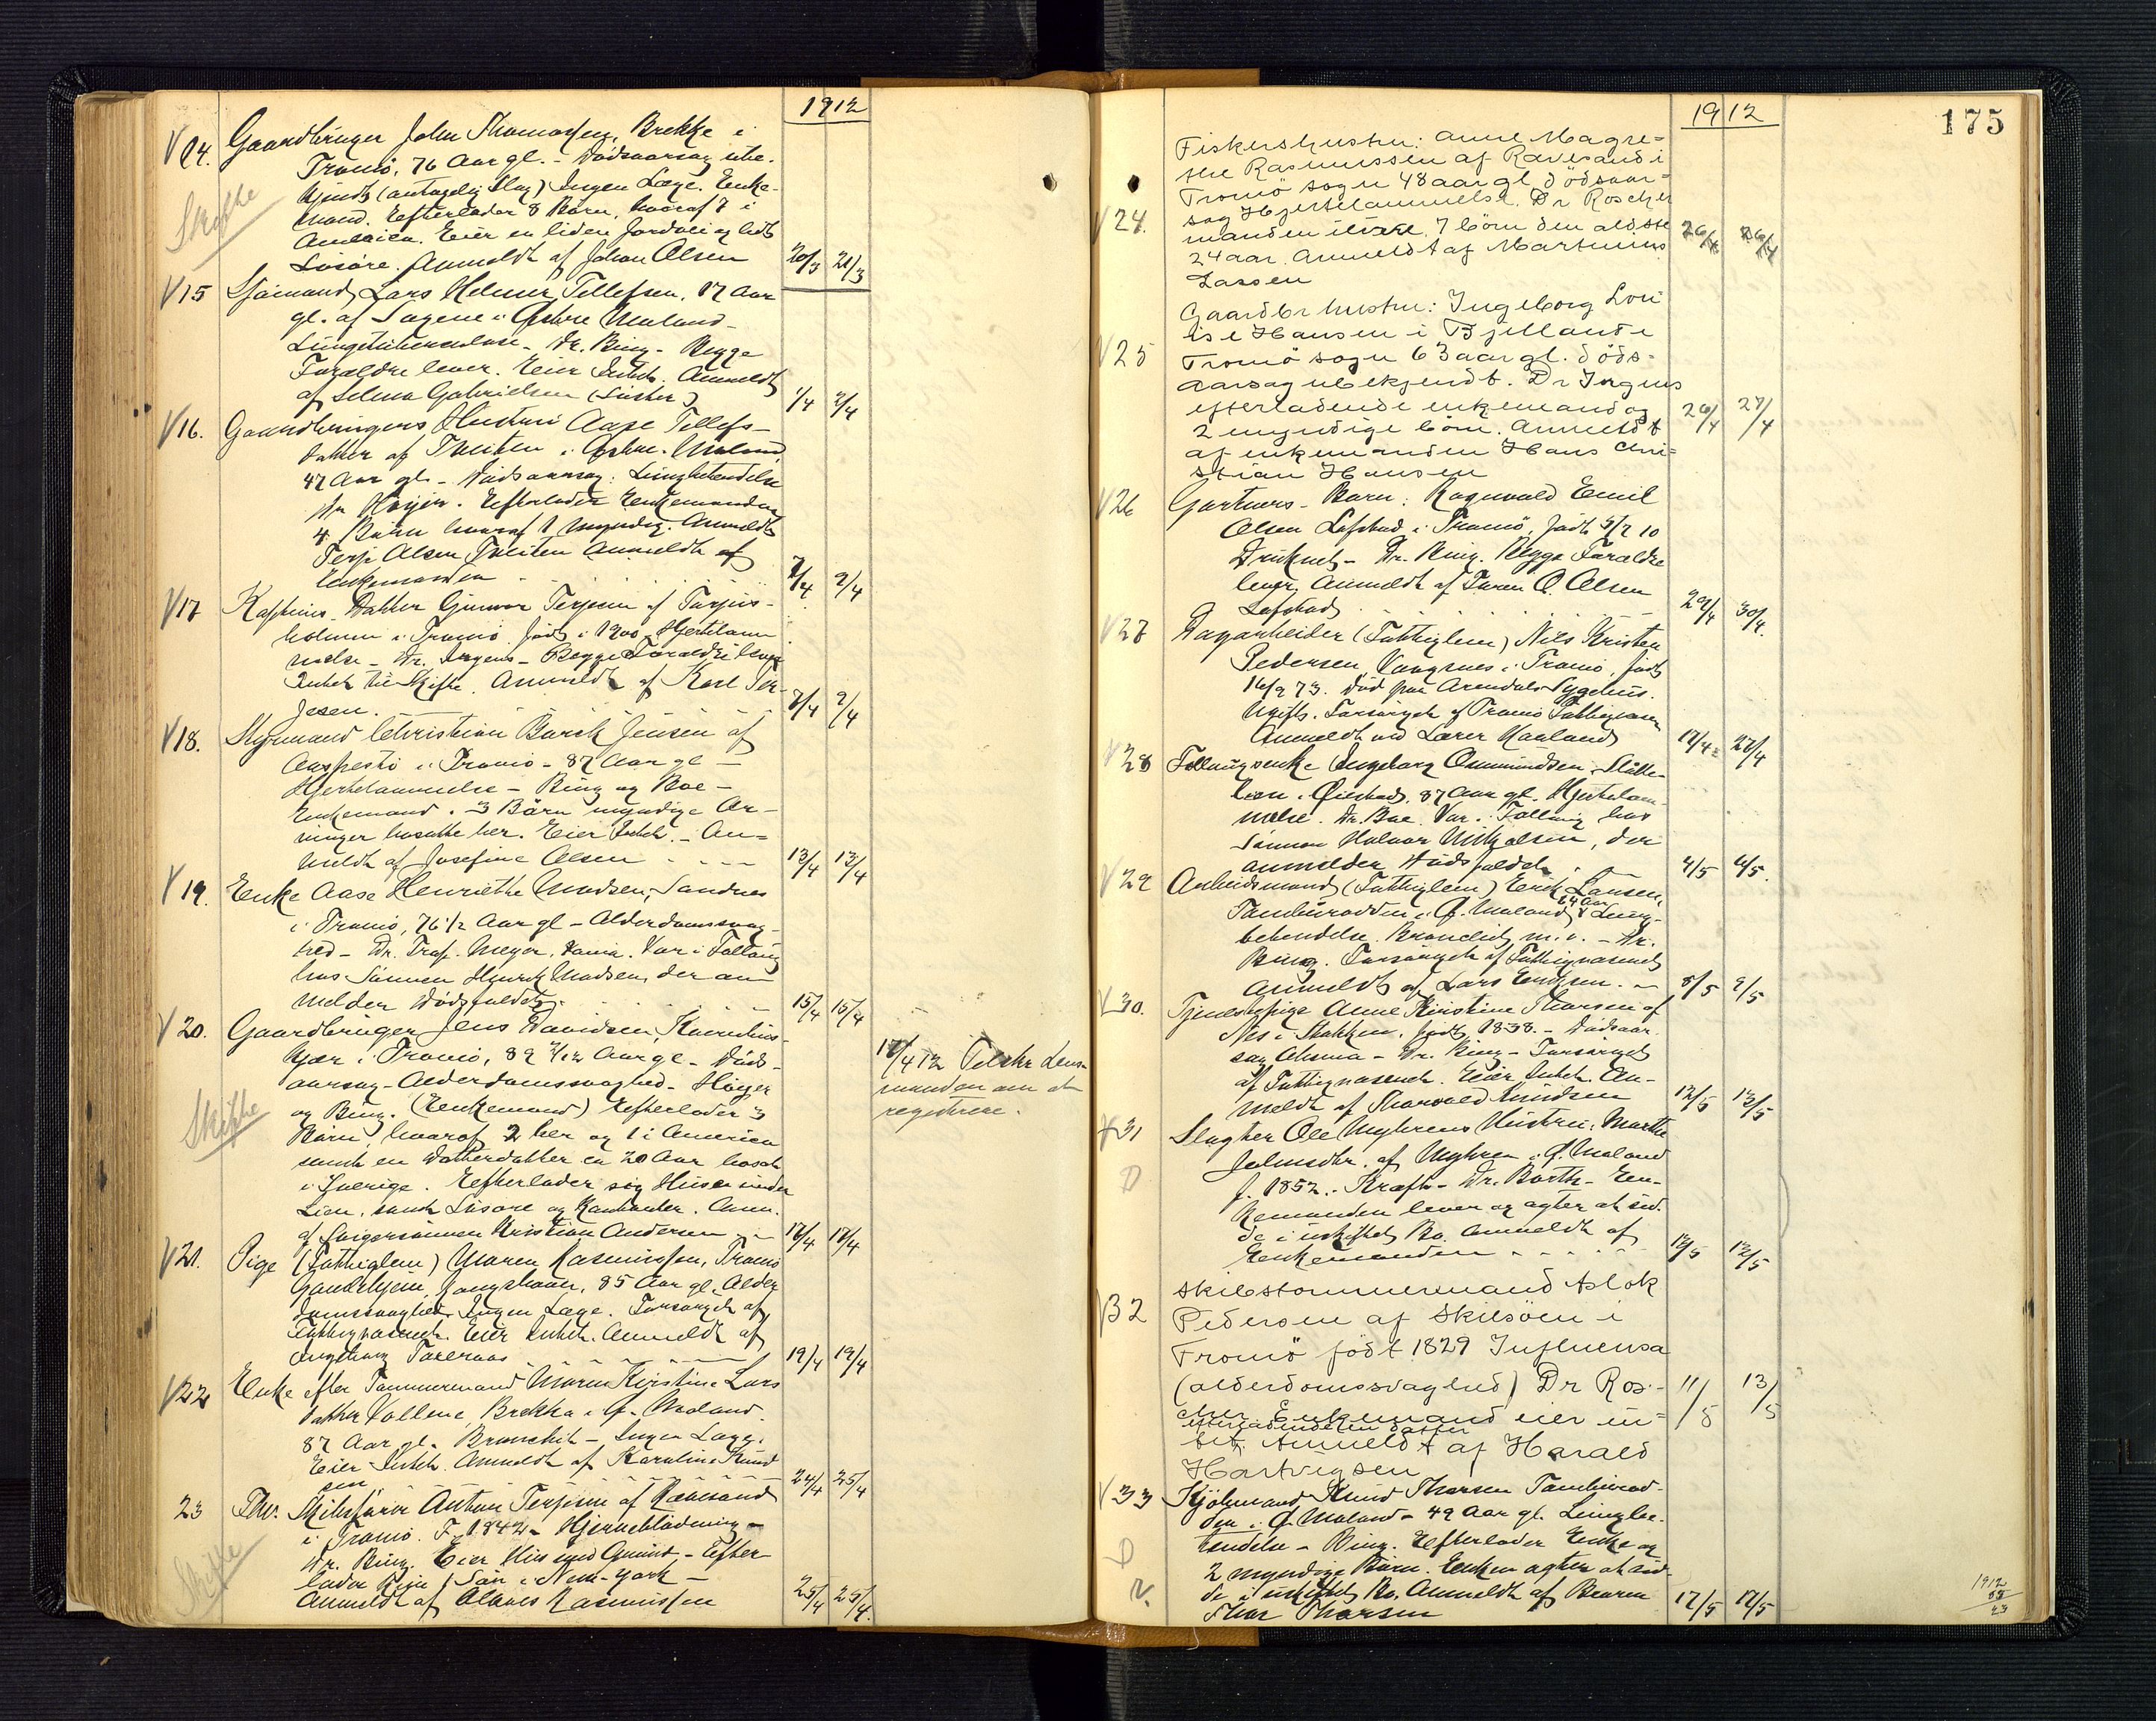 1912
V 14. Gaardbruger John Thomassen, Brekke i
Tromø, 76 Aar gl. - Dødsaarsag ube-
kjendt (antagelig Slag) Ingen Læge. Enke-
Skifte
mand. Efterlader 8 Børn, hvoraf 7 i
America. Eier en liden Jordvei og lidt
Løsøre. Anmeldt af Johan Olsen 20/3 21/3
V 15 Sjømand Lars Helmer Tellefsen, 17 Aar
gl. af Sagene i Østre Moland -
Lungetuberculose - Dr. Bing - Begge
Forældre lever. Eier Intet. Anmeldt
af Selma Gabrielsen (Søster) 1/4 2/4
V 16. Gaardbrugers Hustru Aase Tellefs-
datter af Tveiten i Østre Moland
47 Aar gl. - Dødsaarsag: Lungebetendelse
Høyer. Efterlader Enkemand og
4 Børn hvoraf 1 myndig. Anmeldt
Terje Olsen Tveiten Anmeldt af
Enkemanden 9/4
V 17 Kapteins Datter Gunvor Terjesen af Torjus-
holmen i Tromø. født i 1900 Hjertelam
melse - Dr. Irgens - Begge Forældre lever
Intet til Skifte. Anmeldt af Karl Ter-
jesen. 9/4
V 18. Styrmand Christian Jensen af
i Tromø - 87 Aar gl -
Hjertelammelse - Bing og Boe -
Enkemand. 3 Børn myndige Ar-
vinger bosatte her. Eier Intet. - An-
meldt af Josefine Olsen 13/4 13/4
V 19. Enke Aase Henriette Madsen, Sandnes
i Tromø, 76 1/2 Aar gl - Alderdomssvag-
hed - Dr. Meyer. Var i Follaug
hos Sønnen Henrik Madsen, der an
melder Dødsfaldet. 15/4 15/4
V 20. Gaardbruger Jens Davidsen,
i Tromø, 89 Aar gl - Døds-
aarsag - Alderdomssvaghed - Høyer
Skifte
og Bing. (Enkemand) Efterlader 3
Børn, hvoraf 2 her og 1 i America
samt en Datterdatter ca 20 Aar bosat
i Sverige. Efterlader sig Huse
samt Løsøre og Kontanter. Anm.
af Svigersønnen Kristian Andersen 17/4 17/4
17/4 12 Tilskr. Lens-
manden om at
registrere.
V 21. Pige (Fattiglem) Maren Rasmussen, Tromø
Gamlehjem, Kongshavn, 85 Aar gl. Alder
domssvaghed. Ingen Læge. Forsørget af
Fattigvæsenet. Eier Intet. Anmeldt af
Ingeborg 19/4 19/4
V 22 Enke efter Tømmermand Maren Kirstine Lars
datter Vollene, Brekka i Ø. Moland.
87 Aar gl. Bronchit - Ingen Læge.
Eier Intet. Anmeldt af Karoline Knud
sen 24/4 25/4
23 Fhv. Skibsfører Anton Terjesen af Ravesand
i Tromø. F. 1842 - Hjerneblødning -
Skifte
Dr. Bing. Eier Hus med Grund. - Efter-
lader Søn i New-York -
Anmeldt af Rasmussen 25/4 25/4.
1912
175
Fiskershustru: Anne Magre-
the Rasmussen af Ravesand i
Tromö sogn 48 aar gl. dödsaar-
sag Hjertelammelse. Dr Roscher
V 24. manden ilive, 7 börn den aldste 26/4 26/4
24 aar. Anmeldt af Martinius
Lassen
Gaardbr hustru: Ingeborg Lovi
ise Hansen i Bjelland i
V 25 Tromö sogn 63 aar gl. döds-
aarsag ubekjendt. Dr Irgens
efterladende enkemand og 26/4 27/4
2 myndige börn. Anmeldt
af enkemanden Hans Chri-
stian Hansen
V 26 Gartners Barn: Ragnvald Emil
Olsen Lofstad i Tromø, født 5/7 10
Druknet - Dr. Bing. Begge Forældre
lever. Anmeldt af Faren O. Olsen
Lofstad 29/4 30/4.
V 27 Dagarbeider (Fattiglem) Nils Kristen
Pedersen, Vaagsnes i Tromø, født
16/9 73. Død paa Arendals Sygehus.
Ugift. Forsørget af Tromø Fattigvæsen
Anmeldt ved Lærer Kaaland 17/4 27/4
V 28 Follaugsenke Ingeborg Osmundsen,
i Øiestad, 87 Aar gl. Hjertelam
melse. Dr. Boe. Var i Follaug hos
Sønnen Halvor Mikalsen, der
anmelder Dødsfaldet. 4/5 4/5.
V 29 Arbeidsmand (Fattiglem) Erik Larsen,
64 Aar
Tambursodden i Ø. Moland Lunge-
betendelse. Bronchit m.v. - Dr.
Bing. Forsørget af Fattigvæsenet
Anmeldt af Lars Eriksen. 8/5 9/5
V 30. Tjenestepige Anne Kirstine Thorsen af
Nes i Stokken. født 1838 - Dødsaar-
sag Asthma - Dr. Bing - Forsørget
af Fattigvæsenet. Eier Intet. An-
meldt af Thorvald Knudsen 12/5 12/5
31 Slagter Ole Myhrens Hustru, Marthe
Johnsdtr. af Myhren i Ø. Moland
D
f. 1852. - Kræft - Dr. Barth - En-
kemanden lever og agter at sid-
de i uskiftet Bo. Anmeldt af
Enkemanden 12/5 12/5
V 32 Skibstömmermand Aslak
Pedersen af Skilsöen i
Tromö födt 1829 Influensa
(alderdomssvaghed) Dr Ros- 11/5 13/5
cher. Enkemand eier in-
efterladende en datter
tet. Anmeldt af Harald
Hartvigsen
V 33 Kjøbmand Knud Thorsen Tambursod-
den i Ø. Moland - 49 Aar gl. Lungebe-
D
tendelse - Bing. Efterlader Enke og
2 myndige Børn. Enken agter at sid-
de i uskiftet Bo. Anmeldt af Broren
Thor Thorsen 17/5 17/5
1912